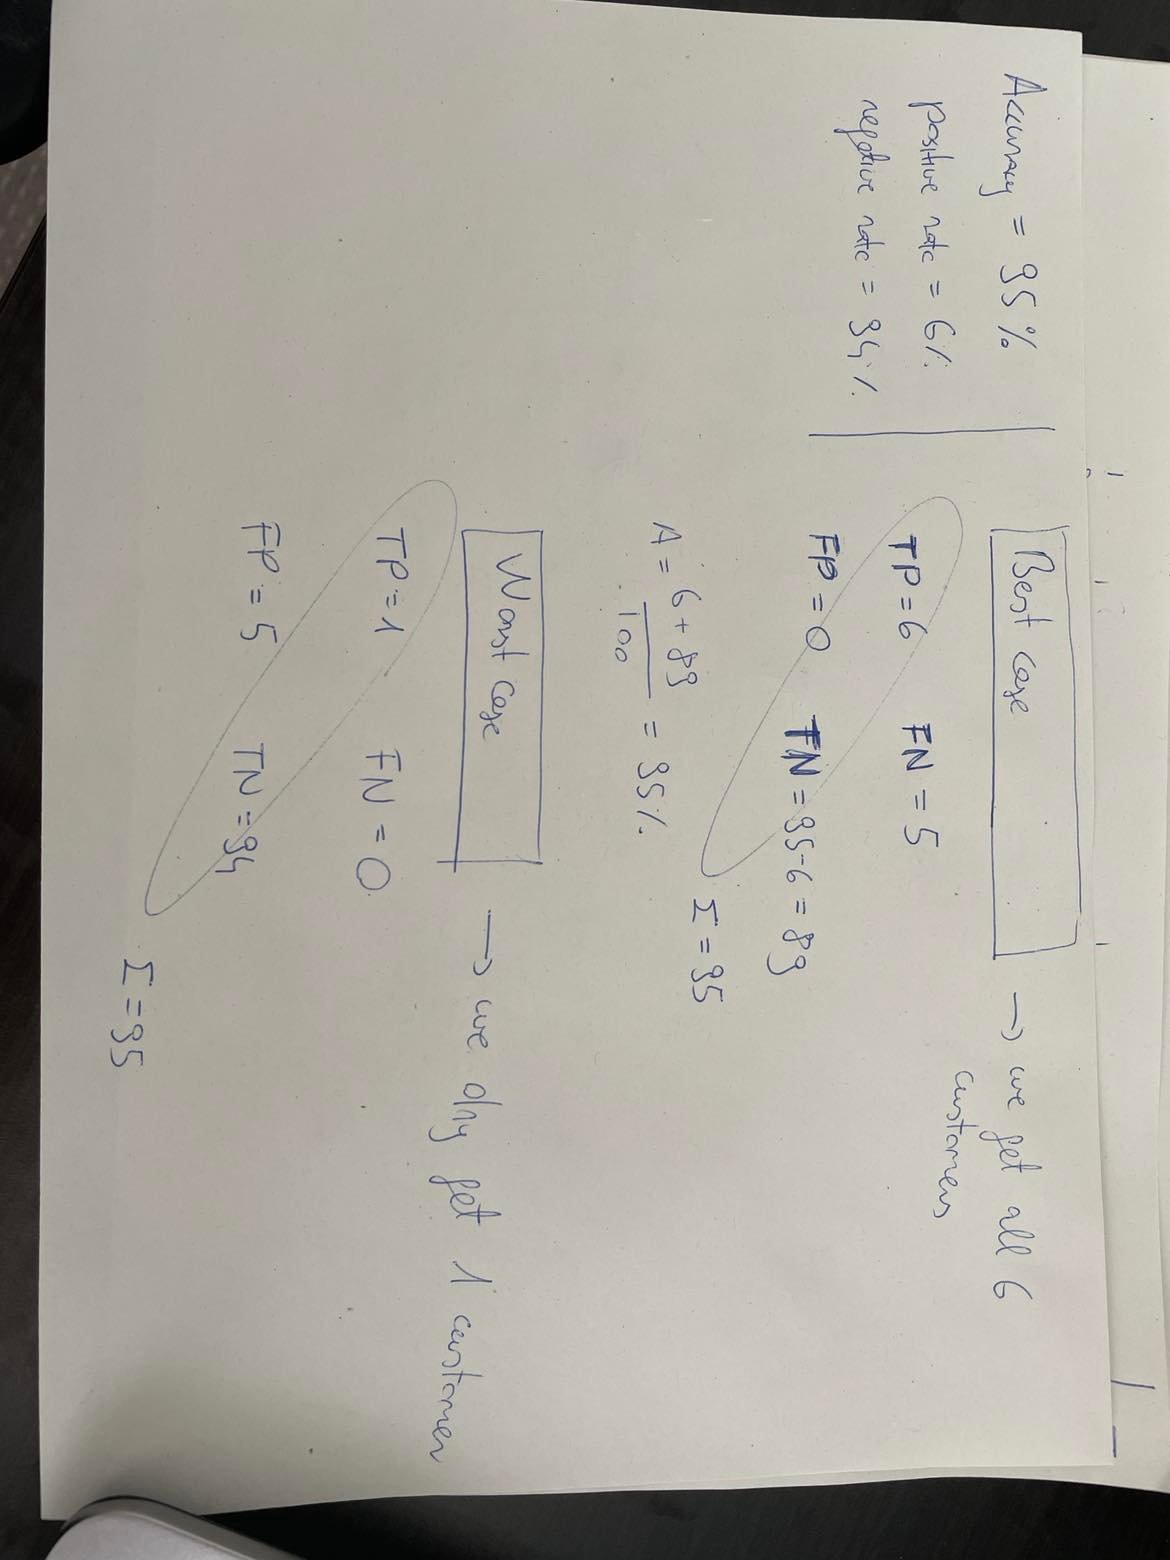 Accuracy = 95%
positive rate = 6%
negative rate = 94%
Best case → we get all 6
customers
TP = 6 FN = 5
FP = 0 TN = 95-6 = 89
Σ = 95
A = 6 + 89 / 100 = 95%
Worst case → we only get 1 customer
TP = 1 FN = 0
FP = 5 TN = 94
Σ = 95